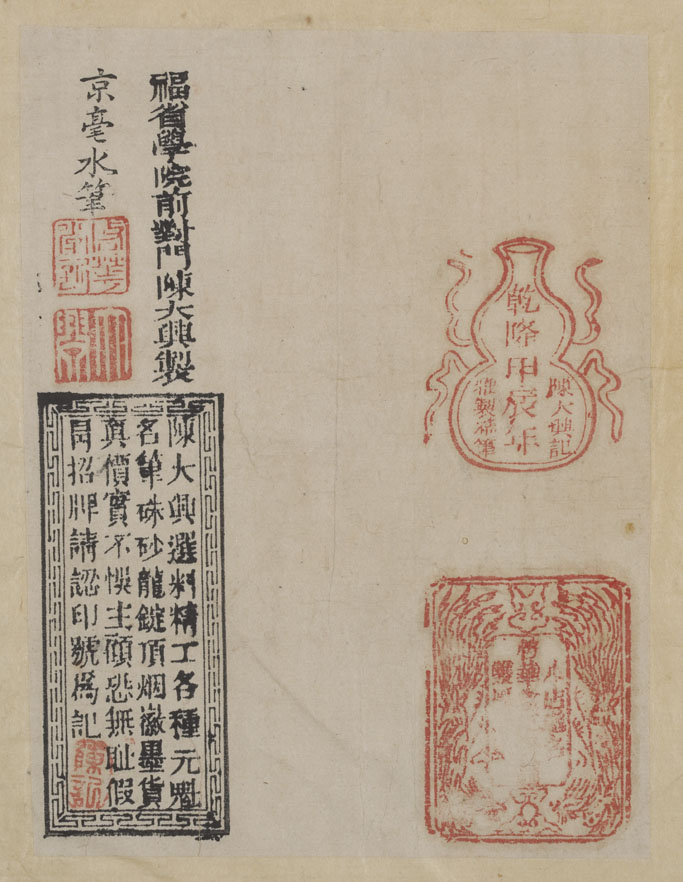 乾隆甲辰年
陳大興記
製筆
福省學院前對門陳大興製
京毫水筆
大興
陳大興選料精工各種元魁
名筆硃砂龍錠頂烟徽墨貨
真價實不悞主顧恐無耻假
冐招牌請認印號爲記
陳記